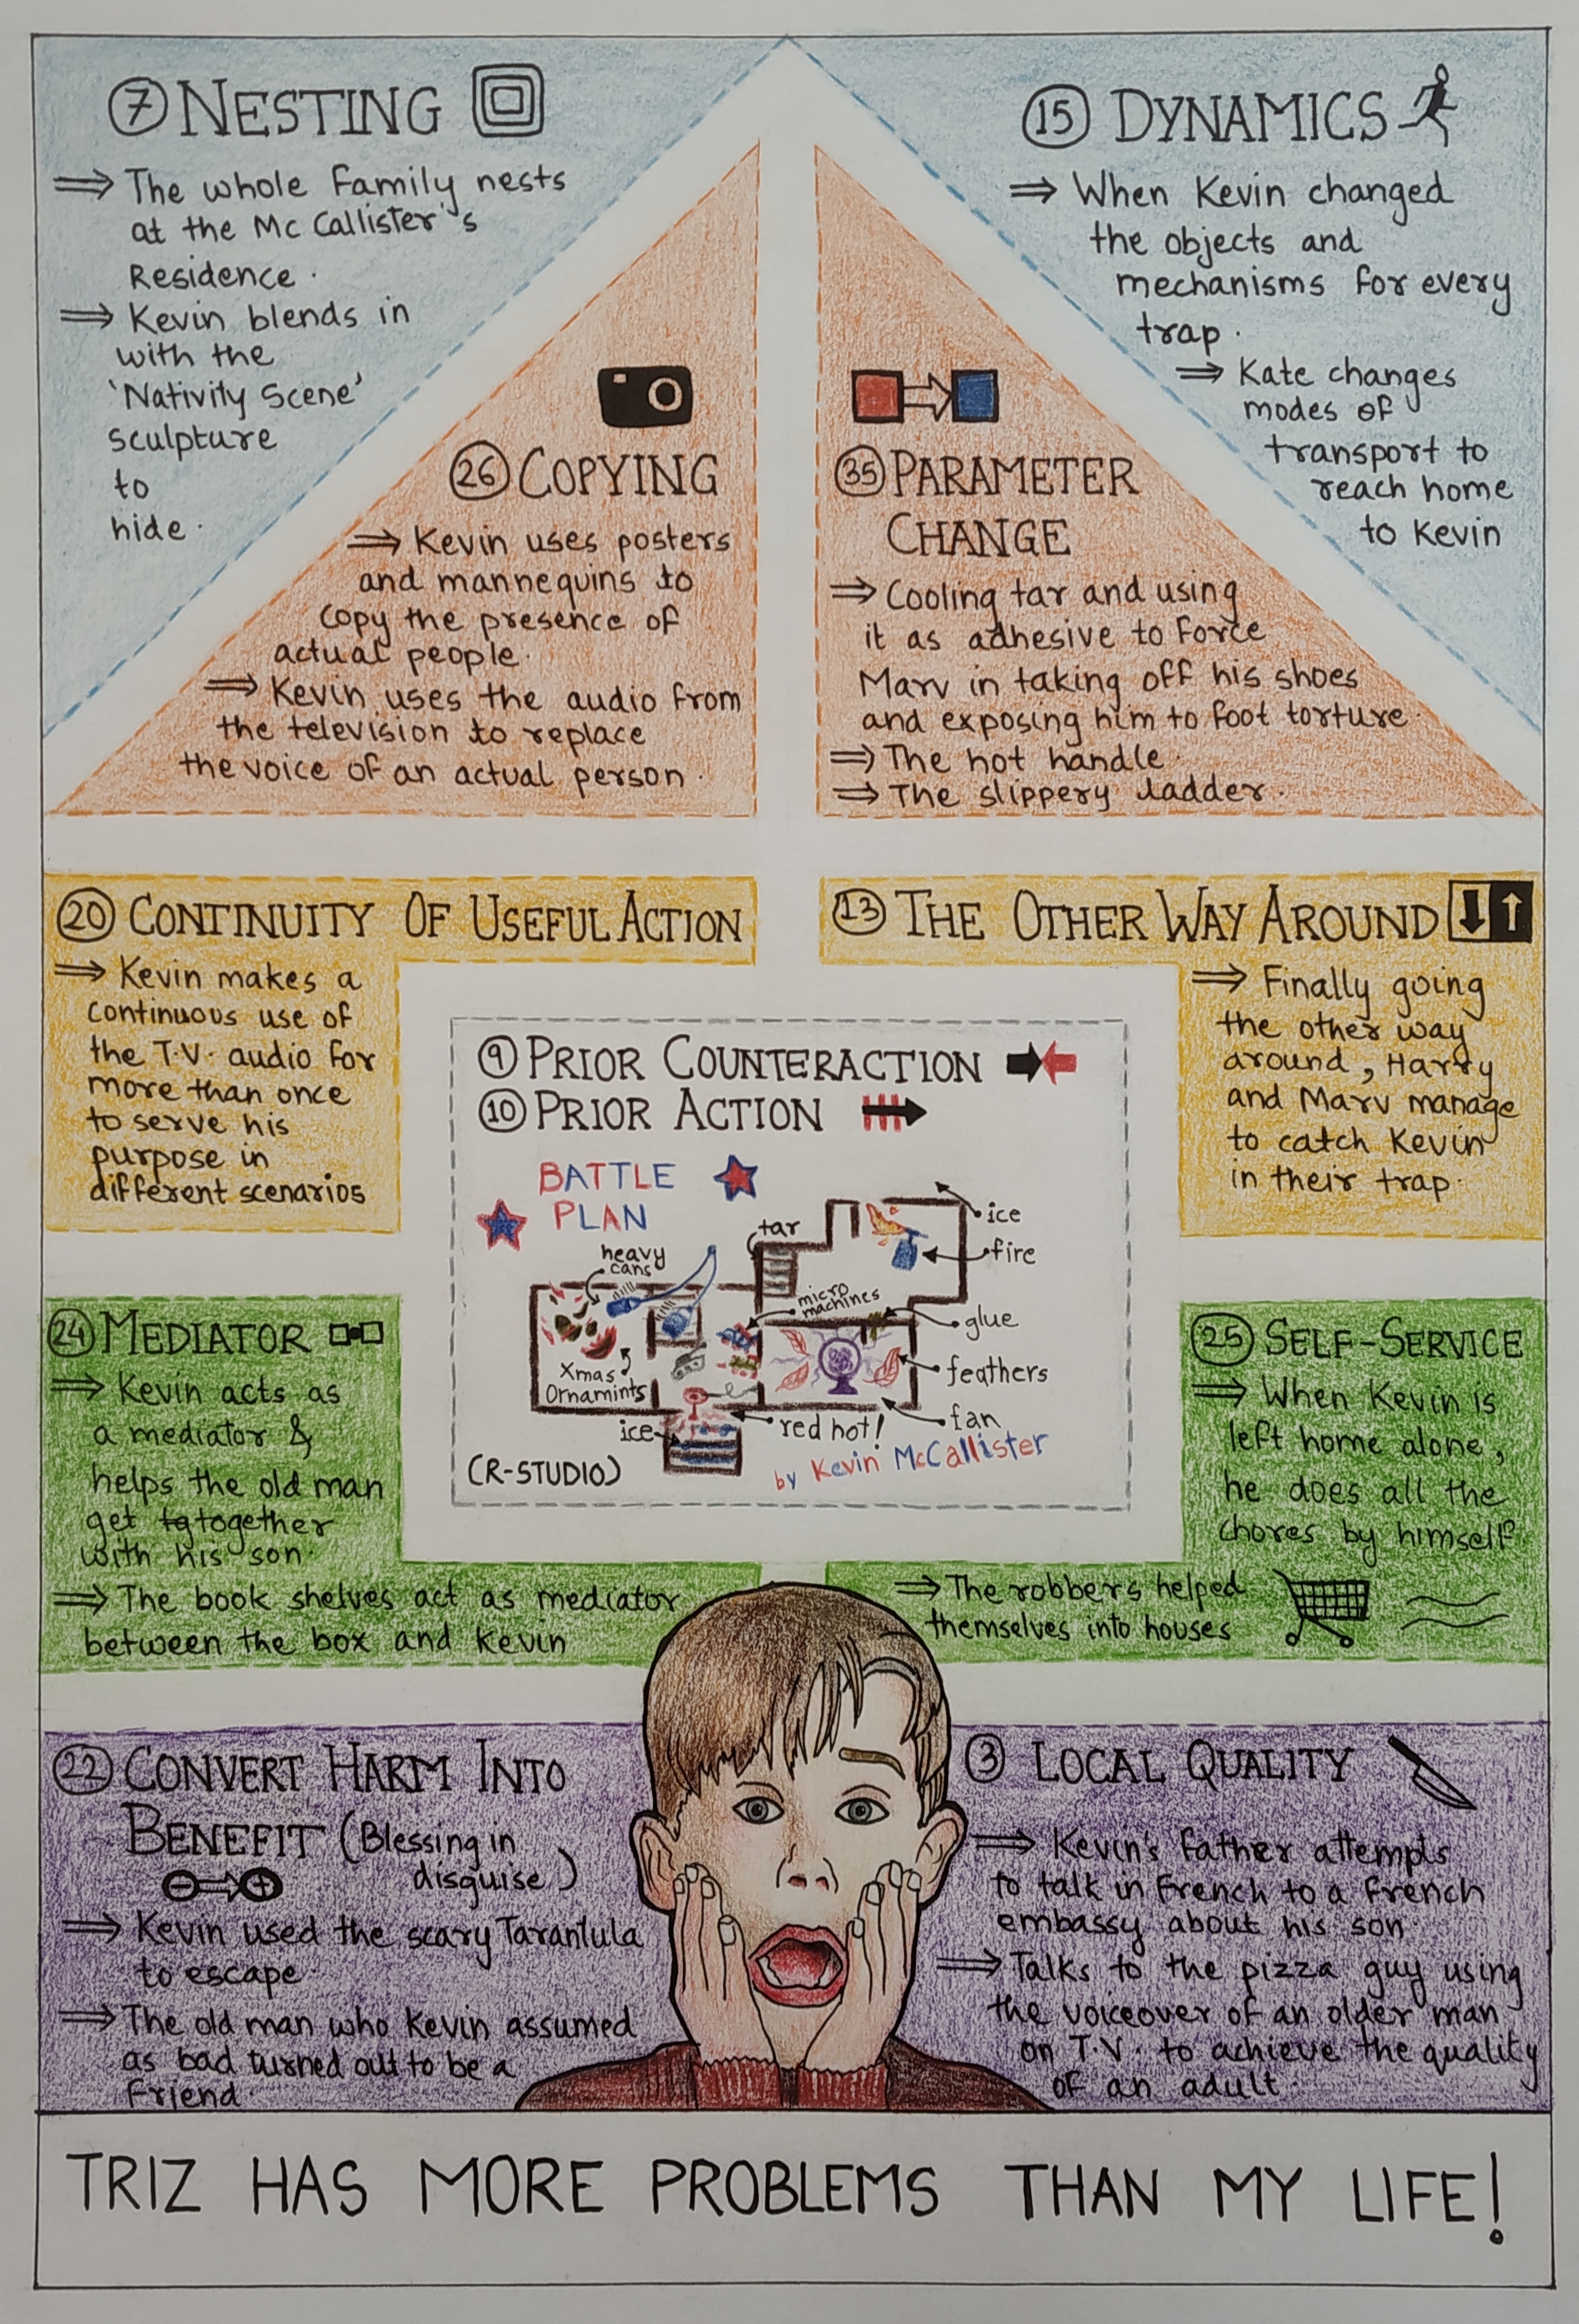 7 NESTING
⇒ The whole family nests
at the McCallister's
Residence.
⇒ Kevin blends in
with the
'Nativity Scene'
sculpture
to
hide.
15 DYNAMICS
⇒ When Kevin changed
the objects and
mechanisms for every
trap.
⇒ Kate changes
modes of
transport to
reach home
to Kevin
26 COPYING
⇒ Kevin uses posters
and mannequins to
copy the presence of
actual people.
⇒ Kevin uses the audio from
the television to replace
the voice of an actual person.
35 PARAMETER
CHANGE
⇒ Cooling tar and using
it as adhesive to force
Marv in taking off his shoes
and exposing him to foot torture.
⇒ The hot handle.
⇒ The slippery ladder.
20 CONTINUITY OF USEFUL ACTION
⇒ Kevin makes a
continuous use of
the T.V. audio for
more than once
to serve his
purpose in
different scenarios
13 THE OTHER WAY AROUND
⇒ Finally going
the other way
around, Harry
and Marv manage
to catch Kevin
in their trap.
9 PRIOR COUNTERACTION
10 PRIOR ACTION
BATTLE
PLAN
tar
ice
heavy
cans
fire
micro
machines
glue
Xmas
Ornamints
feathers
ice
red hot!
fan
(R-STUDIO)
by Kevin McCallister
24 MEDIATOR
⇒ Kevin acts as
a mediator &
helps the old man
get tg together
with his son.
⇒ The book shelves act as mediator
between the box and Kevin
25 SELF-SERVICE
⇒ When Kevin is
left home alone,
he does all the
chores by himself.
⇒ The robbers helped
themselves into houses
22 CONVERT HARM INTO
BENEFIT (Blessing in
disguise)
⇒ Kevin used the scary Tarantula
to escape.
⇒ The old man who Kevin assumed
as bad turned out to be a
friend.
3 LOCAL QUALITY
⇒ Kevin's father attempts
to talk in French to a French
embassy about his son.
⇒ Talks to the pizza guy using
the voiceover of an older man
on T.V. to achieve the quality
of an adult.
TRIZ HAS MORE PROBLEMS THAN MY LIFE!